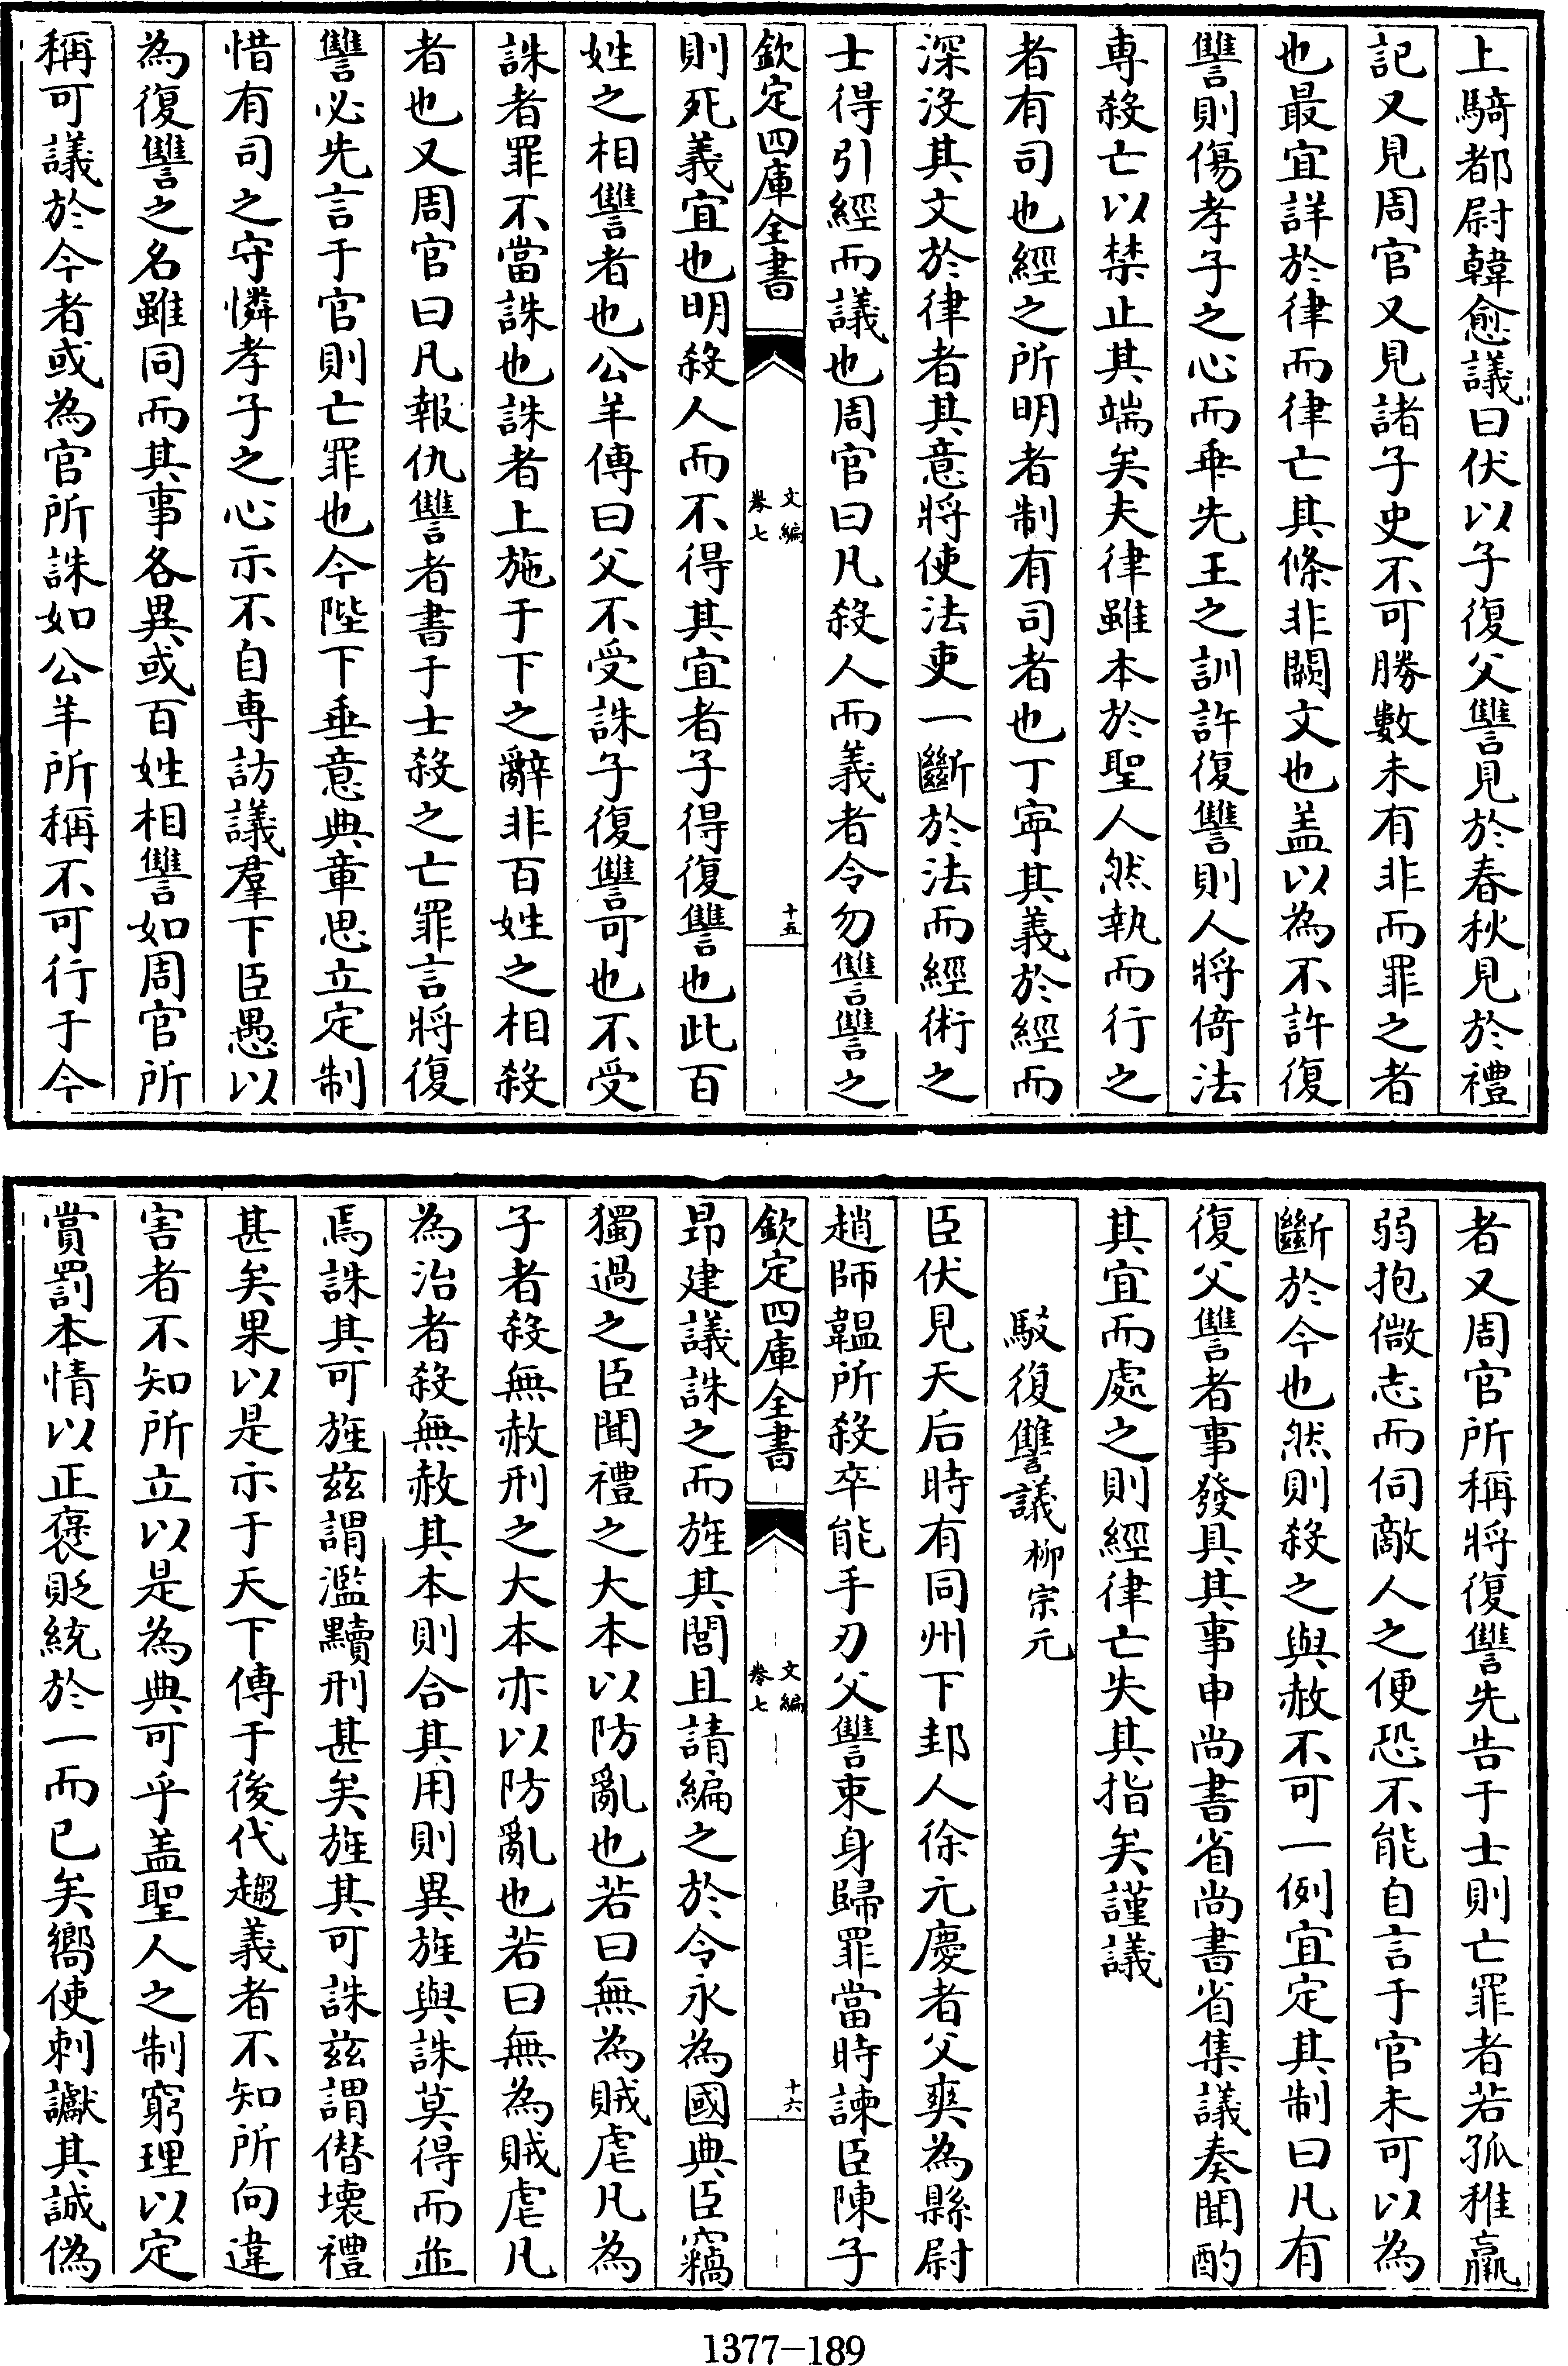 上騎都尉韓愈議曰伏以子復父讐見於春秋見於禮
記又見周官又見諸子史不可勝數未有非而罪之者
也最宜詳於律而律亡其條非闕文也盖以為不許復
讐則傷孝子之心而乖先王之訓許復讐則人將倚法
專殺亡以禁止其端矣夫律雖本於聖人然執而行之
者有司也經之所明者制有司者也丁寧其義於經而
深沒其文於律者其意將使法吏一斷於法而經術之
士得引經而議也周官曰凡殺人而義者令勿讐讐之
欽定四庫全書
文編
卷七
十五
則死義宜也明殺人而不得其宜者子得復讐也此百
姓之相讐者也公羊傳曰父不受誅子復讐可也不受
誅者罪不當誅也誅者上施于下之辭非百姓之相殺
者也又周官曰凡報仇讐者書于士殺之亡罪言將復
讐必先言于官則亡罪也今陛下垂意典章思立定制
惜有司之守憐孝子之心示不自專訪議羣下臣愚以
為復讐之名雖同而其事各異或百姓相讐如周官所
稱可議於今者或為官所誅如公羊所稱不可行于今
者又周官所稱將復讐先告于士則亡罪者若孤稚羸
弱抱微志而伺敵人之便恐不能自言于官未可以為
斷於今也然則殺之與赦不可一例宜定其制曰凡有
復父讐者事發具其事申尚書省尚書省集議奏聞酌
其宜而處之則經律亡失其指矣謹議
駁復讐議 柳宗元
臣伏見天后時有同州下邽人徐元慶者父爽為縣尉
趙師韞所殺卒能手刃父讐束身歸罪當時諫臣陳子
欽定四庫全書
文編
卷七
十六
昂建議誅之而旌其閭且請編之於令永為國典臣竊
獨過之臣聞禮之大本以防亂也若曰無為賊虐凡為
子者殺無赦刑之大本亦以防亂也若曰無為賊虐凡
為治者殺無赦其本則合其用則異旌與誅莫得而並
焉誅其可旌茲謂濫黷刑甚矣旌其可誅茲謂僭壞禮
甚矣果以是示于天下傳于後代趨義者不知所向違
害者不知所立以是為典可乎盖聖人之制窮理以定
賞罰本情以正褒貶統於一而已矣嚮使刺讞其誠偽
1377—189